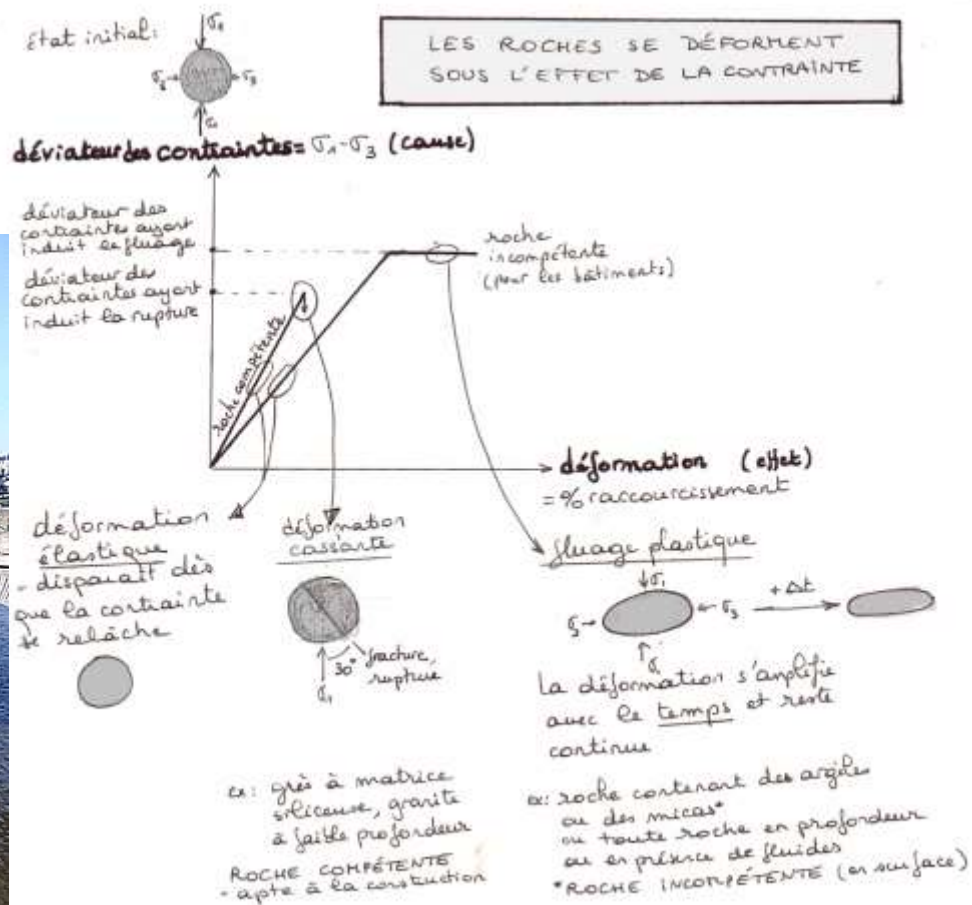 état initial:
σ1
σ3
σ3
σ1
LES ROCHES SE DÉFORMENT
SOUS L'EFFET DE LA CONTRAINTE
déviateur des contraintes = σ1-σ3 (cause)
déviateur des
contraintes ayant
induit le fluage
déviateur des
contraintes ayant
induit la rupture
roche compétente
roche
incompétente
(pour les bâtiments)
déformation (effet)
= % raccourcissement
déformation
élastique
- disparait dès
que la contrainte
se relâche
déformation
cassante
30°
σ1
fracture,
rupture
fluage plastique
σ1
σ3
σ3
σ1
+ Δt
La déformation s'amplifie
avec le temps et reste
continue
ex: grès à matrice
siliceuse, granite
à faible profondeur
ROCHE COMPÉTENTE
- apte à la construction
ex: roche contenant des argiles
ou des micas*
ou toute roche en profondeur
ou en présence de fluides
*ROCHE INCOMPÉTENTE (en surface)